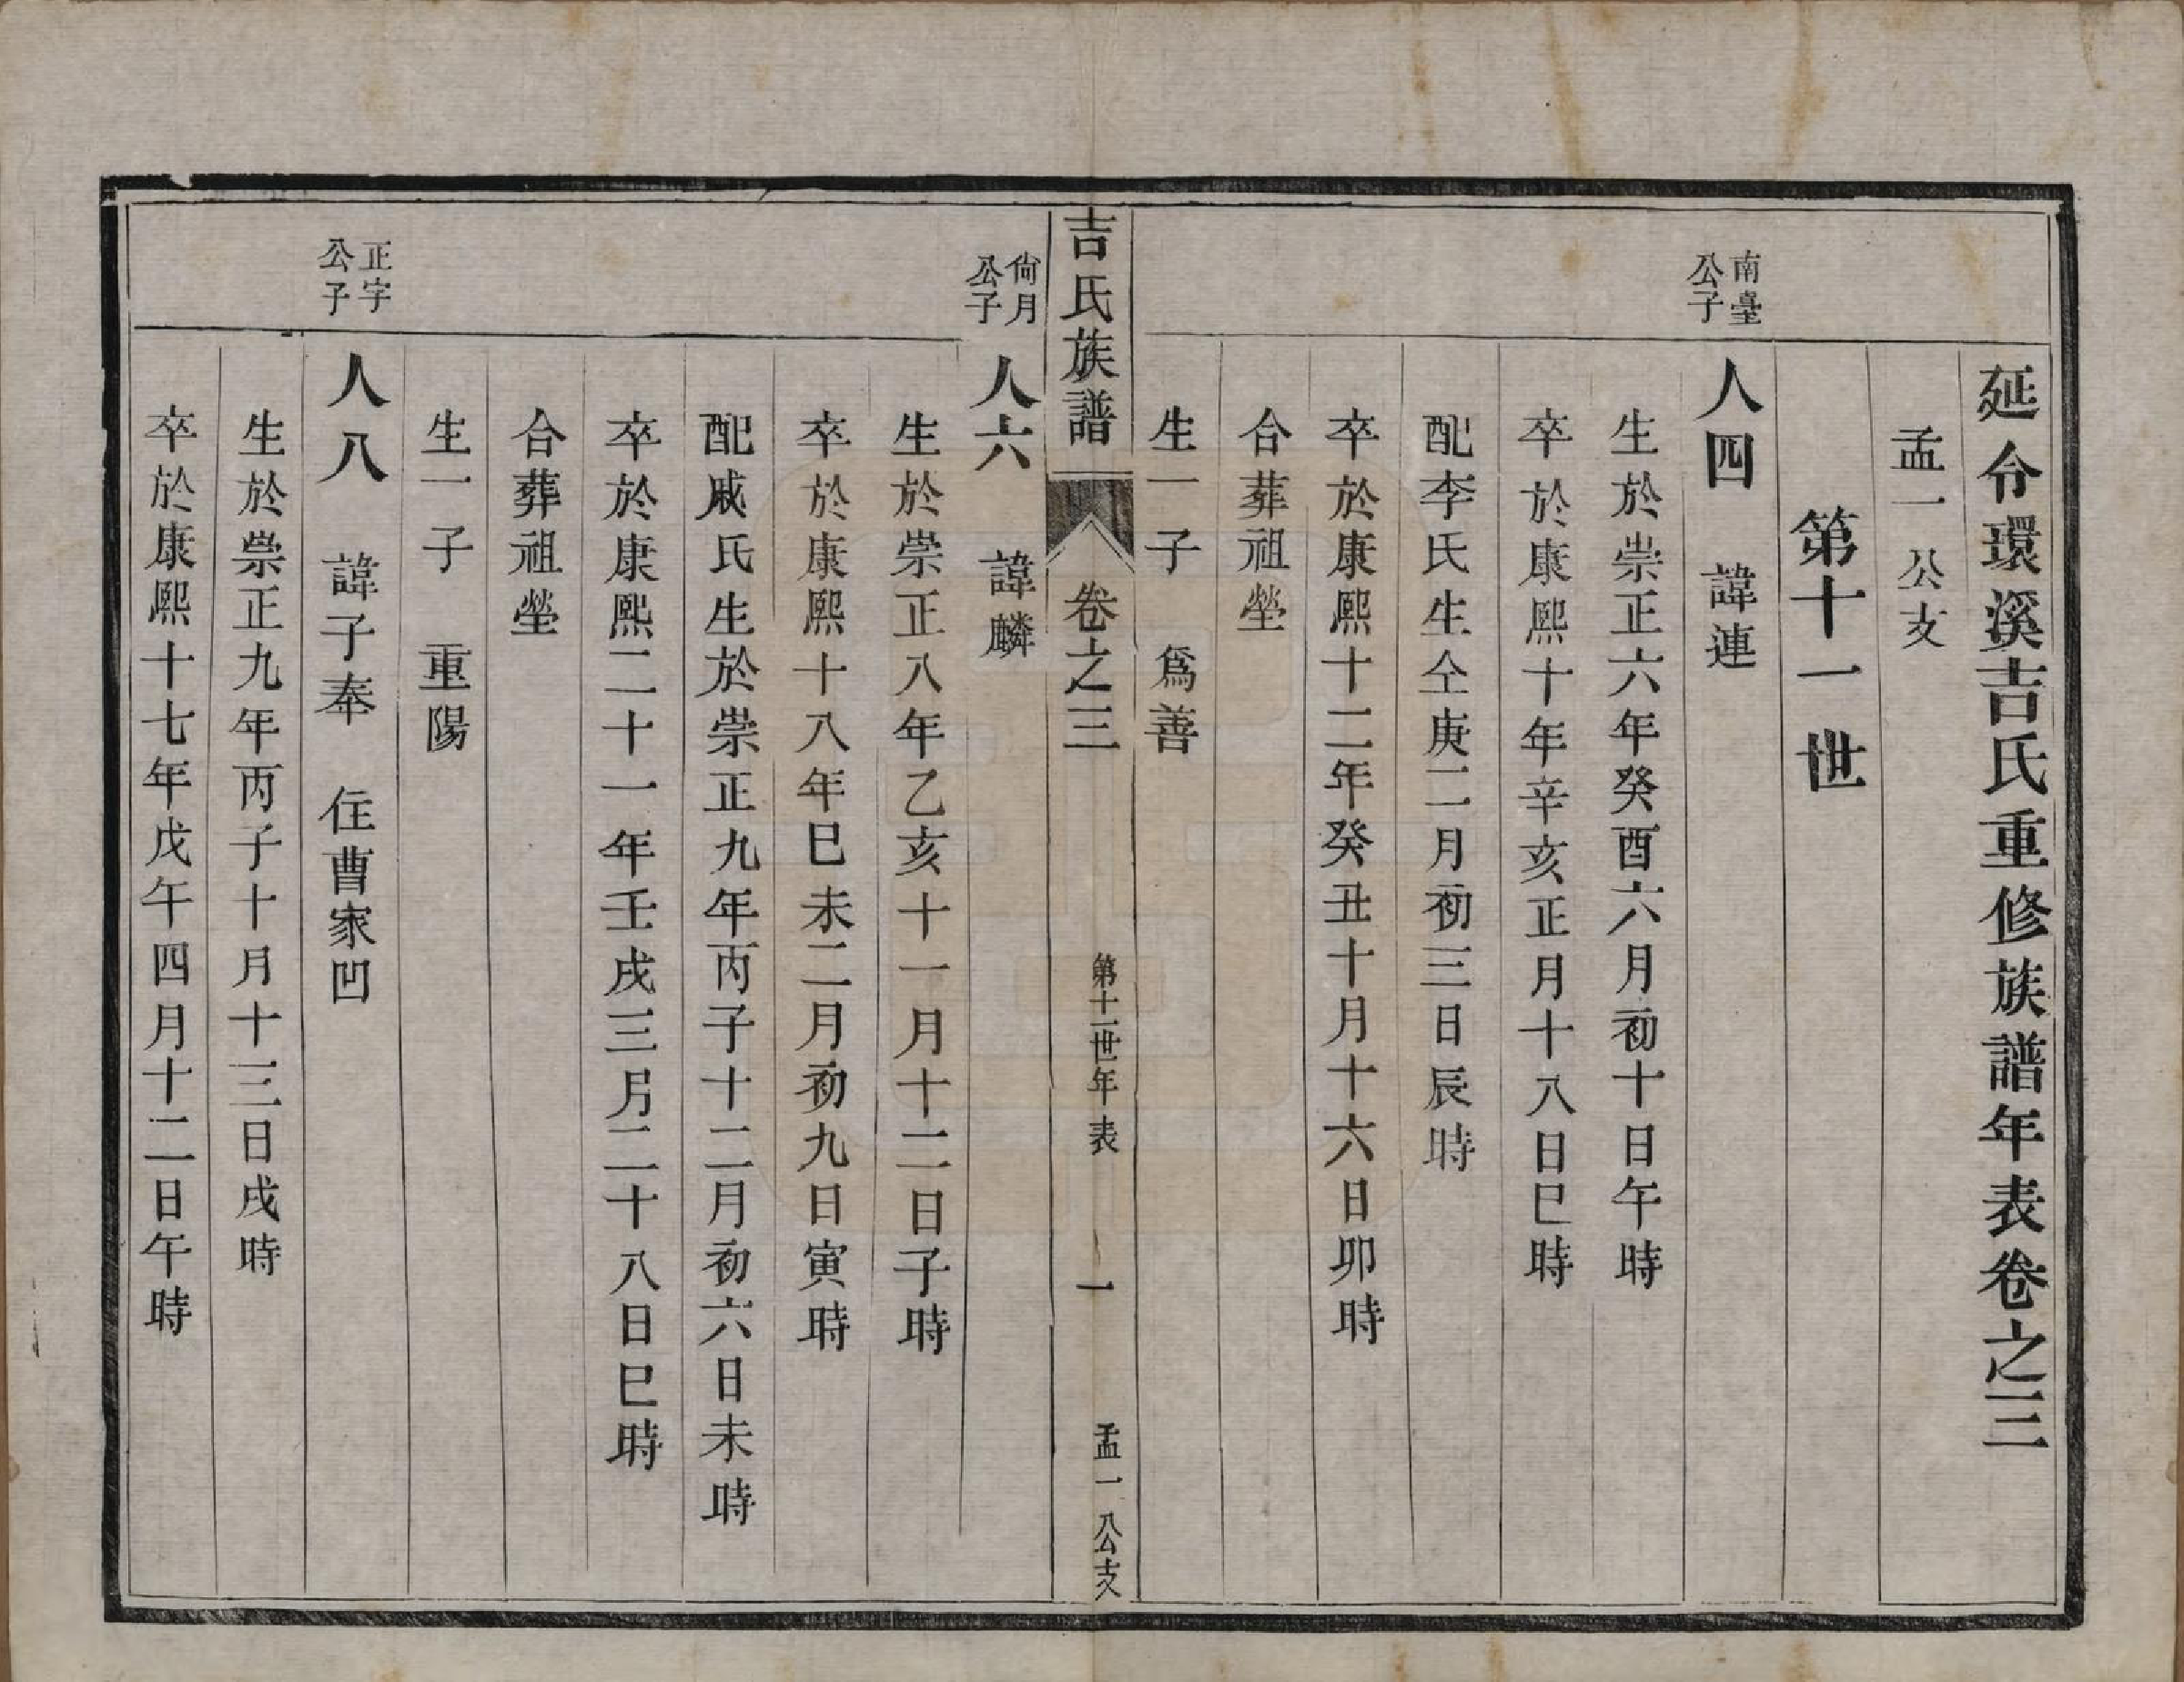 延令環溪吉氏重修族譜年表卷之三
孟一公支
第十一世
南臺
公子
人四　諱連
生於崇正六年癸酉六月初十日午時
卒於康熙十年辛亥正月十八日巳時
配李氏生仝庚二月初三日辰時
卒於康熙十二年癸丑十月十六日卯時
合葬祖塋
生一子　爲善
吉氏族譜　卷之三　第十一世年表　一　孟一公支
尙月
公子
人六　諱麟
生於崇正八年乙亥十一月十二日子時
卒於康熙十八年巳未二月初九日寅時
配戚氏生於崇正九年丙子十二月初六日未時
卒於康熙二十一年壬戌三月二十八日巳時
合葬祖塋
生一子　重陽
正字
公子
人八　諱子奉　住曹家凹
生於崇正九年丙子十月十三日戌時
卒於康熙十七年戊午四月十二日午時